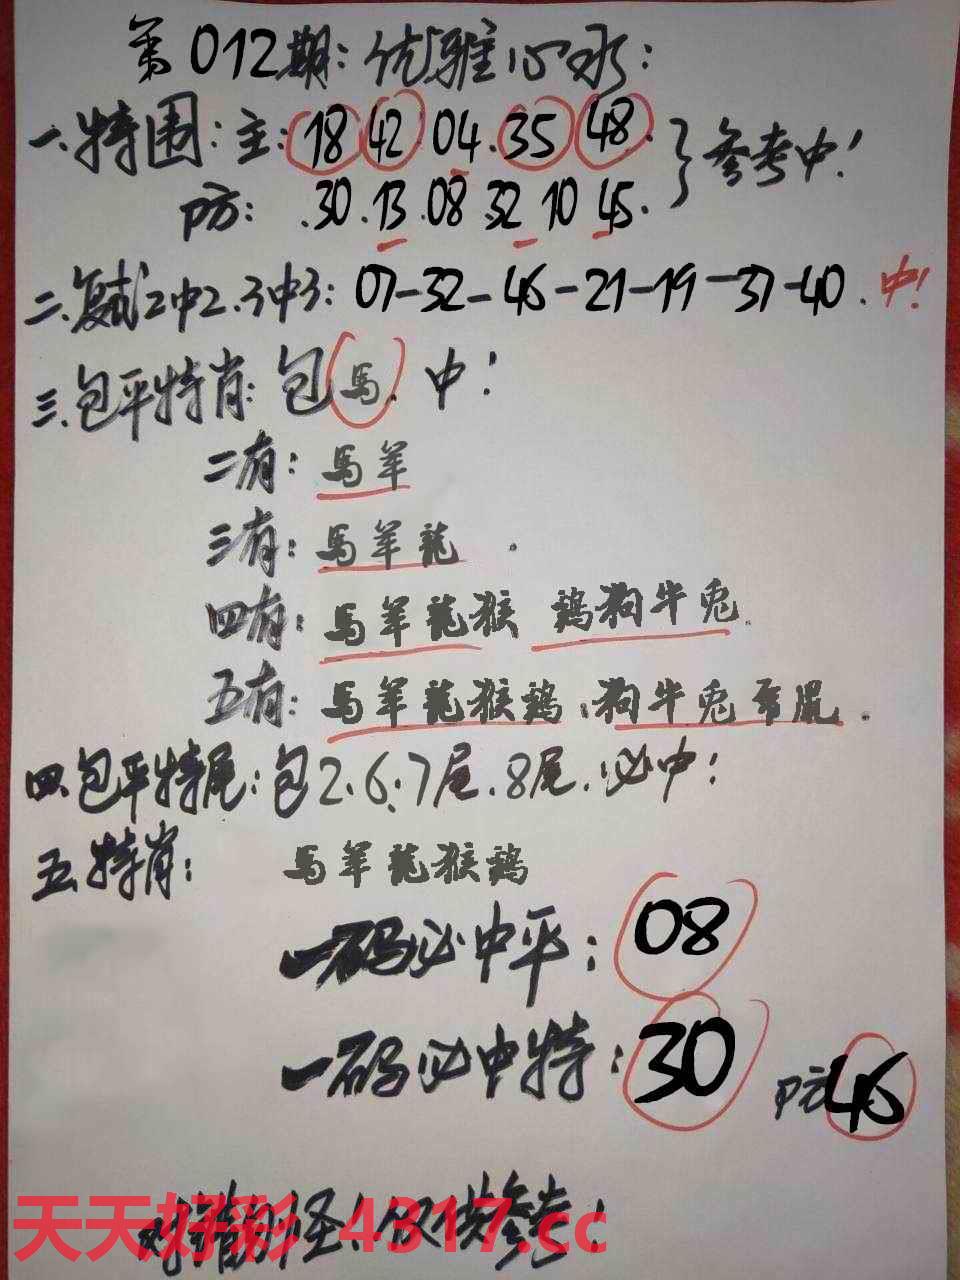 第012期：优雅心水：
一.特围：主：18 42 04.35 48.
防：.30.13.08 32 10 45.
参考中！
二.复试2中2.3中3：07-32-46-21-19-37-40.中！
三.包平特肖：包馬.中！
二有：馬羊
三有：馬羊龍.
四有：馬羊龍猴 鷄狗牛兎.
五有：馬羊龍猴鷄.狗牛兎 鼠.
四.包平特尾：包2.6.7尾.8尾.必中！
五.特肖：馬羊龍猴鷄
一码必中平：08
一码必中特：30 防46
对错勿怪！仅供参考！
天天好彩 4317.cc